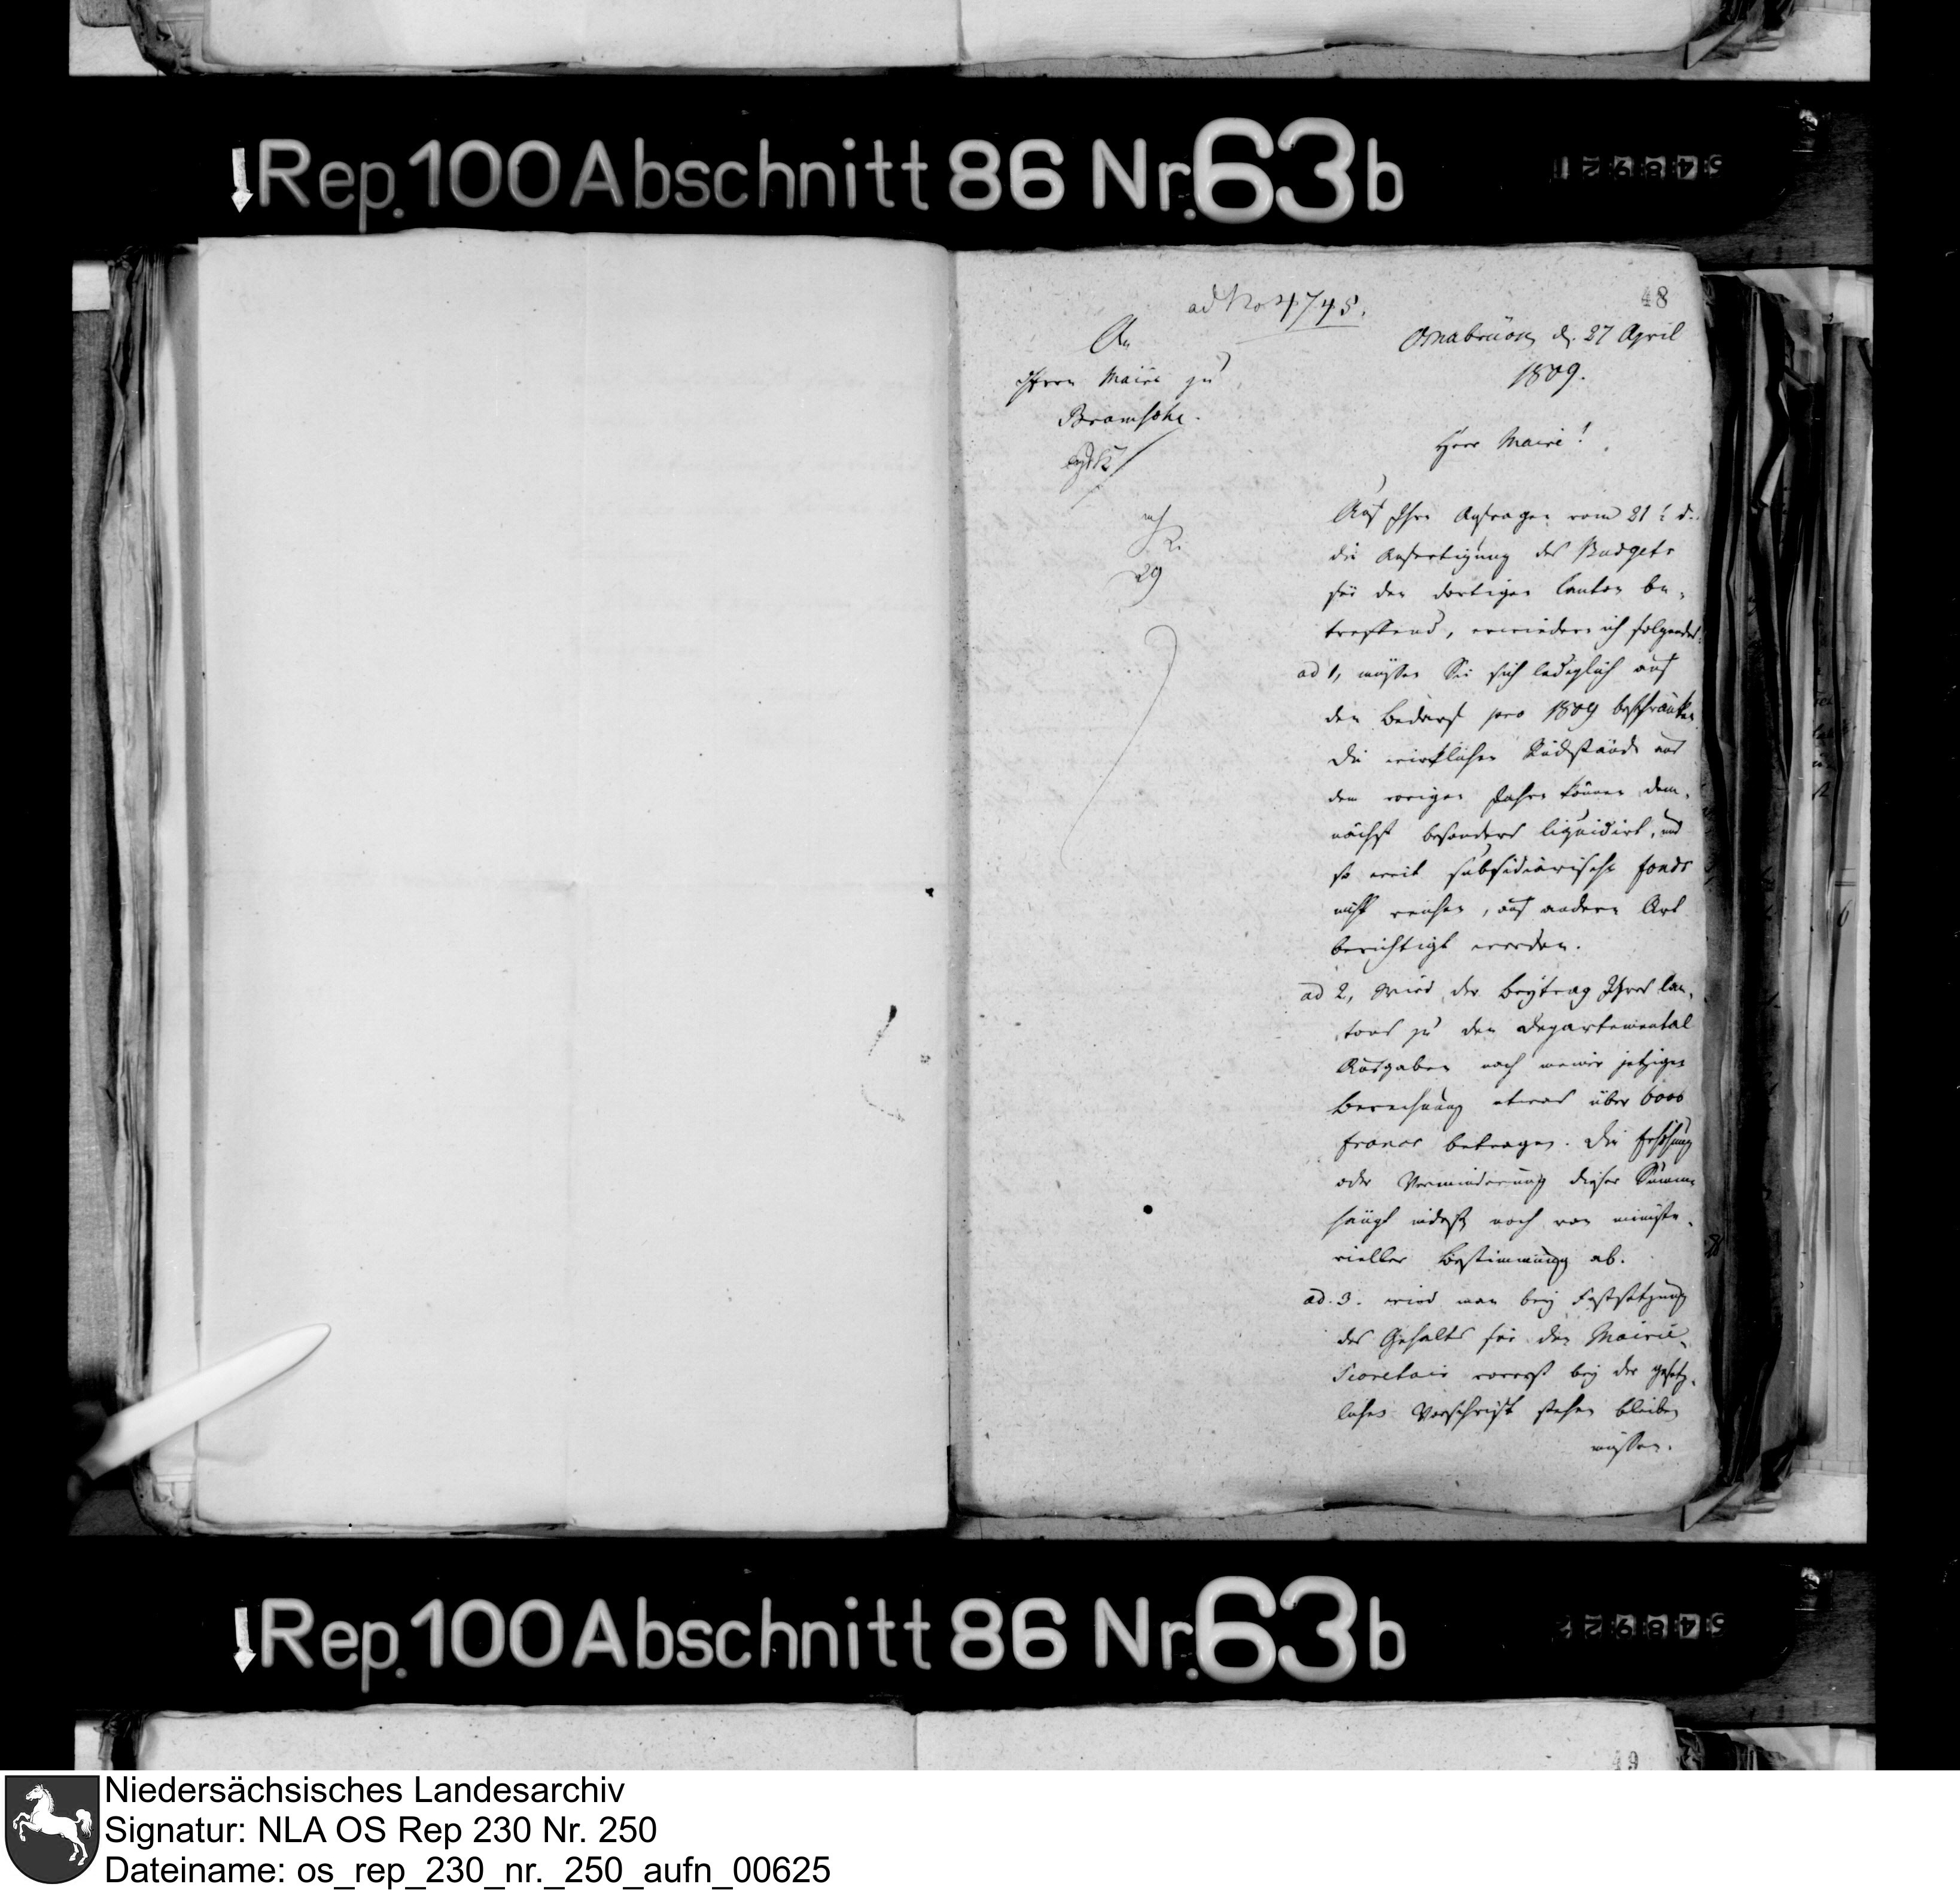 Rep. 100 Abschnitt 86 Nr. 63b
54892
48
ad No 4745.
An
Herrn Maire zu
Bramsche.
Osnabrück d. 27 April
1809.
Herr Maire!
29
Auf Ihre Anfragen vom 21 t. d.
die Anfertigung des Budgets
für den dortigen Canton be-
treffend, erwiedere ich folgendes:
ad 1, müssen Sie sich lediglich auf
den Bedarf pro 1809 beschränken
die wirklichen Rückstände aus
dem vorigen Jahre können dem-
nächst besonders liquidirt, und
so weit subsidiarische fonds
nicht reichen, auf andere Art
berichtigt werden.
ad 2, wird der Beytrag Ihres Can-
tons zu den Departemental
Ausgaben nach meiner jetzigen
Berechnung etwas über 6000
francs betragen. Die Erhöhung
oder Verminderung dieser Summe
hängt indeß noch von ministe-
rieller Bestimmung ab.
ad. 3. wird man bey Festsetzung
des Gehalts für den Mairie-
Secretair vorerst bey der gesetz-
lichen Vorschrift stehen bleiben
müssen.
Rep. 100 Abschnitt 86 Nr. 63b
54892
49
Niedersächsisches Landesarchiv
Signatur: NLA OS Rep 230 Nr. 250
Dateiname: os_rep_230_nr._250_aufn_00625